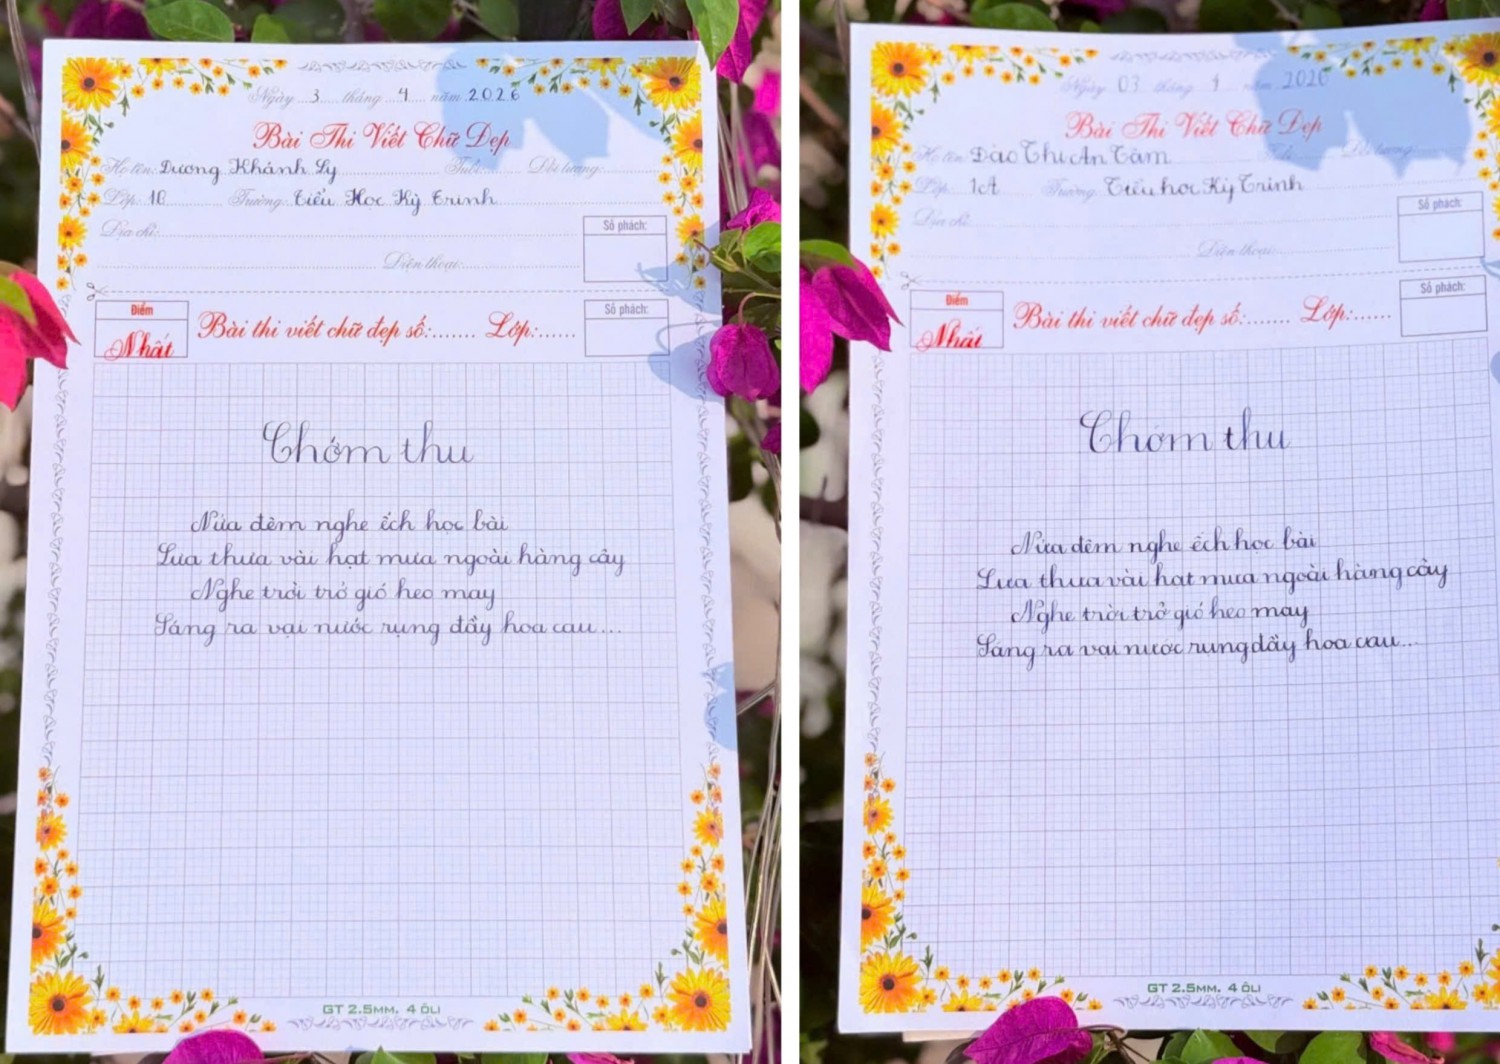 Ngày 3 tháng 4 năm 2026
Bài Thi Viết Chữ Đẹp
Họ tên: Dương Khánh Ly Tuổi: Đối tượng:
Lớp: 1B Trường: Tiểu Học Kỳ Trinh
Địa chỉ:
Điện thoại:
Số phách:
Điểm
Nhất
Bài thi viết chữ đẹp số:....... Lớp:......
Số phách:
Chớm thu
Nửa đêm nghe ếch học bài
Lưa thưa vài hạt mưa ngoài hàng cây
Nghe trời trở gió heo may
Sáng ra vại nước rụng đầy hoa cau...
GT 2.5MM. 4 ÔLI
Ngày 03 tháng 4 năm 2026
Bài Thi Viết Chữ Đẹp
Họ tên: Đào Thị An Tâm Tuổi: Đối tượng:
Lớp: 1A Trường: Tiểu học Kỳ Trinh
Địa chỉ:
Điện thoại:
Số phách:
Điểm
Nhất
Bài thi viết chữ đẹp số:....... Lớp:......
Số phách:
Chớm thu
Nửa đêm nghe ếch học bài
Lưa thưa vài hạt mưa ngoài hàng cây
Nghe trời trở gió heo may
Sáng ra vại nước rụng đầy hoa cau...
GT 2.5MM. 4 ÔLI